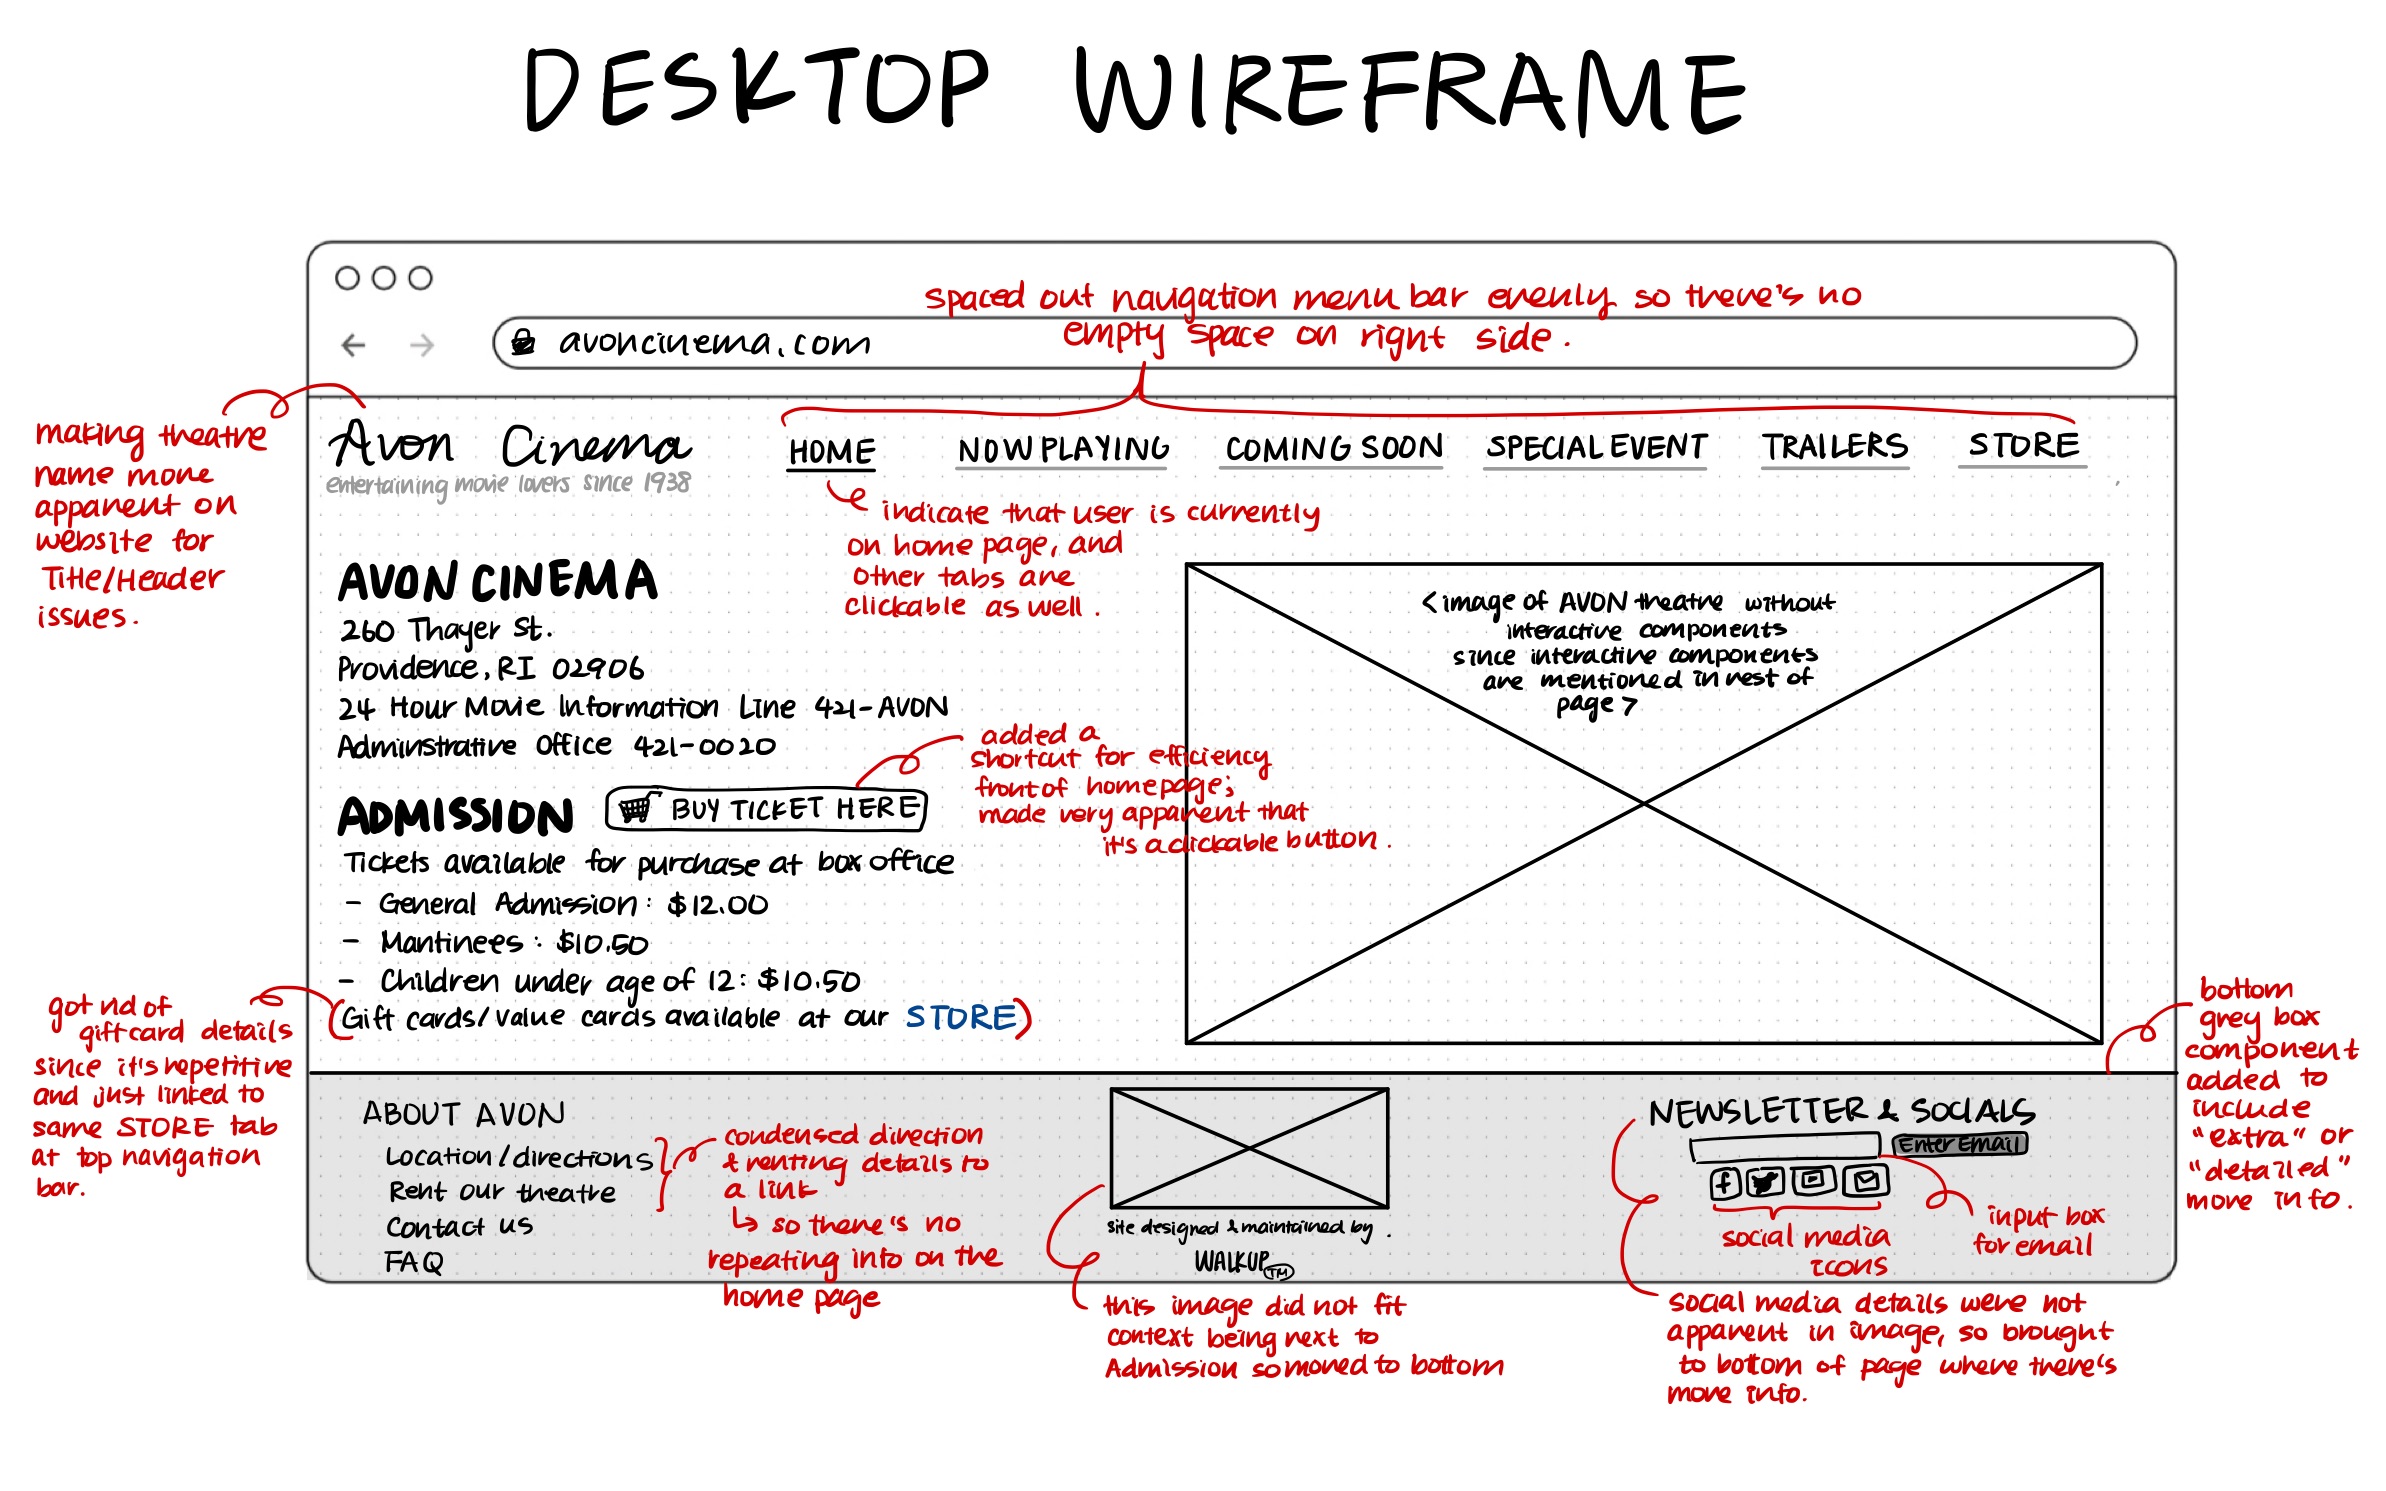 DESKTOP WIREFRAME
spaced out navigation menu bar evenly so there's no
empty space on right side.
avoncinema.com
making theatre
name more
apparent on
website for
Title/Header
issues.
Avon Cinema
entertaining movie lovers since 1938
HOME
NOW PLAYING
COMING SOON
SPECIAL EVENT
TRAILERS
STORE
indicate that user is currently
on home page, and
other tabs are
clickable as well.
AVON CINEMA
260 Thayer St.
Providence, RI 02906
24 Hour Movie Information Line 421-AVON
Adminstrative Office 421-0020
<image of AVON theatre without
interactive components
since interactive components
are mentioned in rest of
page>
added a
shortcut for efficiency
front of homepage;
made very apparent that
it's a clickable button.
ADMISSION
BUY TICKET HERE
Tickets available for purchase at box office
- General Admission: $12.00
- Mantinees: $10.50
- Children under age of 12: $10.50
(Gift cards/value cards available at our STORE)
got rid of
giftcard details
since it's repetitive
and just linked to
same STORE tab
at top navigation
bar.
bottom
grey box
component
added to
include
"extra" or
"detailed"
more info.
ABOUT AVON
Location/directions
Rent our theatre
Contact us
FAQ
condensed direction
& renting details to
a link
↳ so there's no
repeating info on the
home page
site designed & maintained by.
WALKUP TM
this image did not fit
context being next to
Admission so moved to bottom
NEWSLETTER & SOCIALS
Enter Email
f
social media
icons
input box
for email
social media details were not
apparent in image, so brought
to bottom of page where there's
more info.